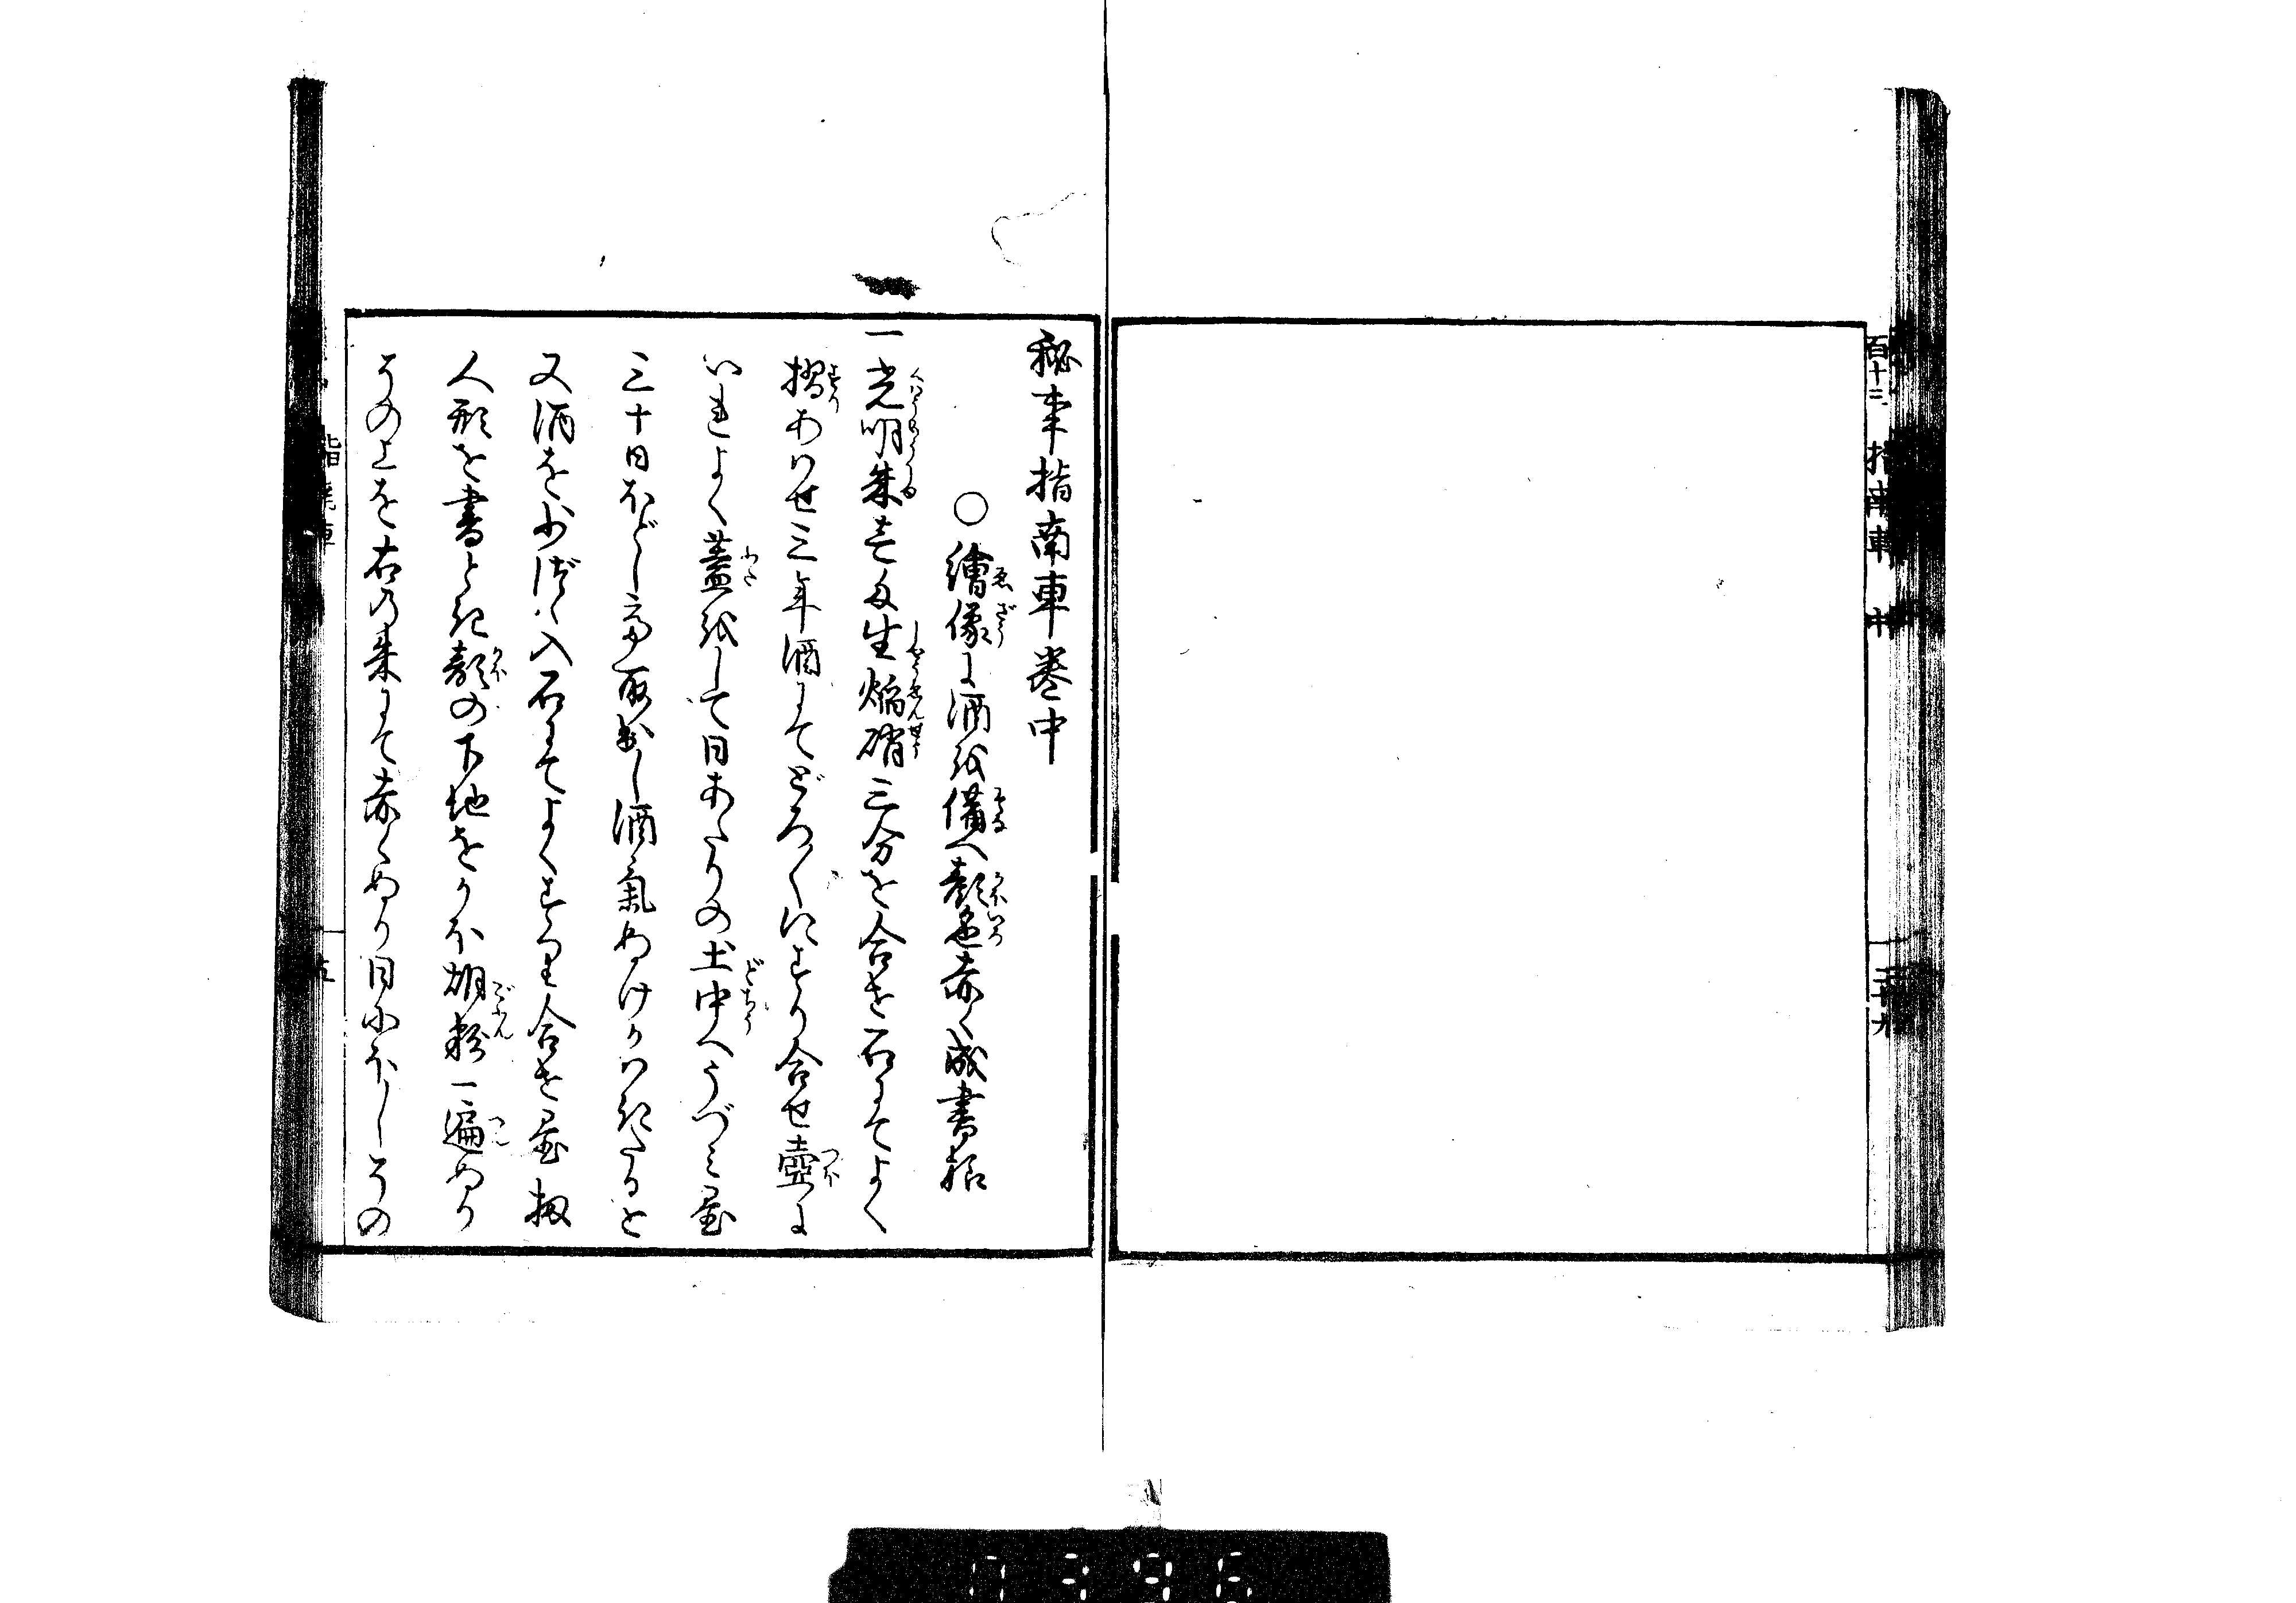 百十三 指南車 中 三十九
秘事指南車巻中
○繪像に酒を備へ顔色赤く成書様
一光明朱壱匁生焔硝三分を合せ石にてよく
摺あハせ三年酒にてどろ〱にすり合せ壺に
いれよく蓋をして日あたりの土中へうづミ置
三十日ほどし而取出し酒氣ぬけかハきたると
又酒を少づゝ入石にてよくすり合せ置扨
人形を書とき顔の下地をかふ胡粉一遍ぬり
その上を右の朱にて赤くぬり日にほしその